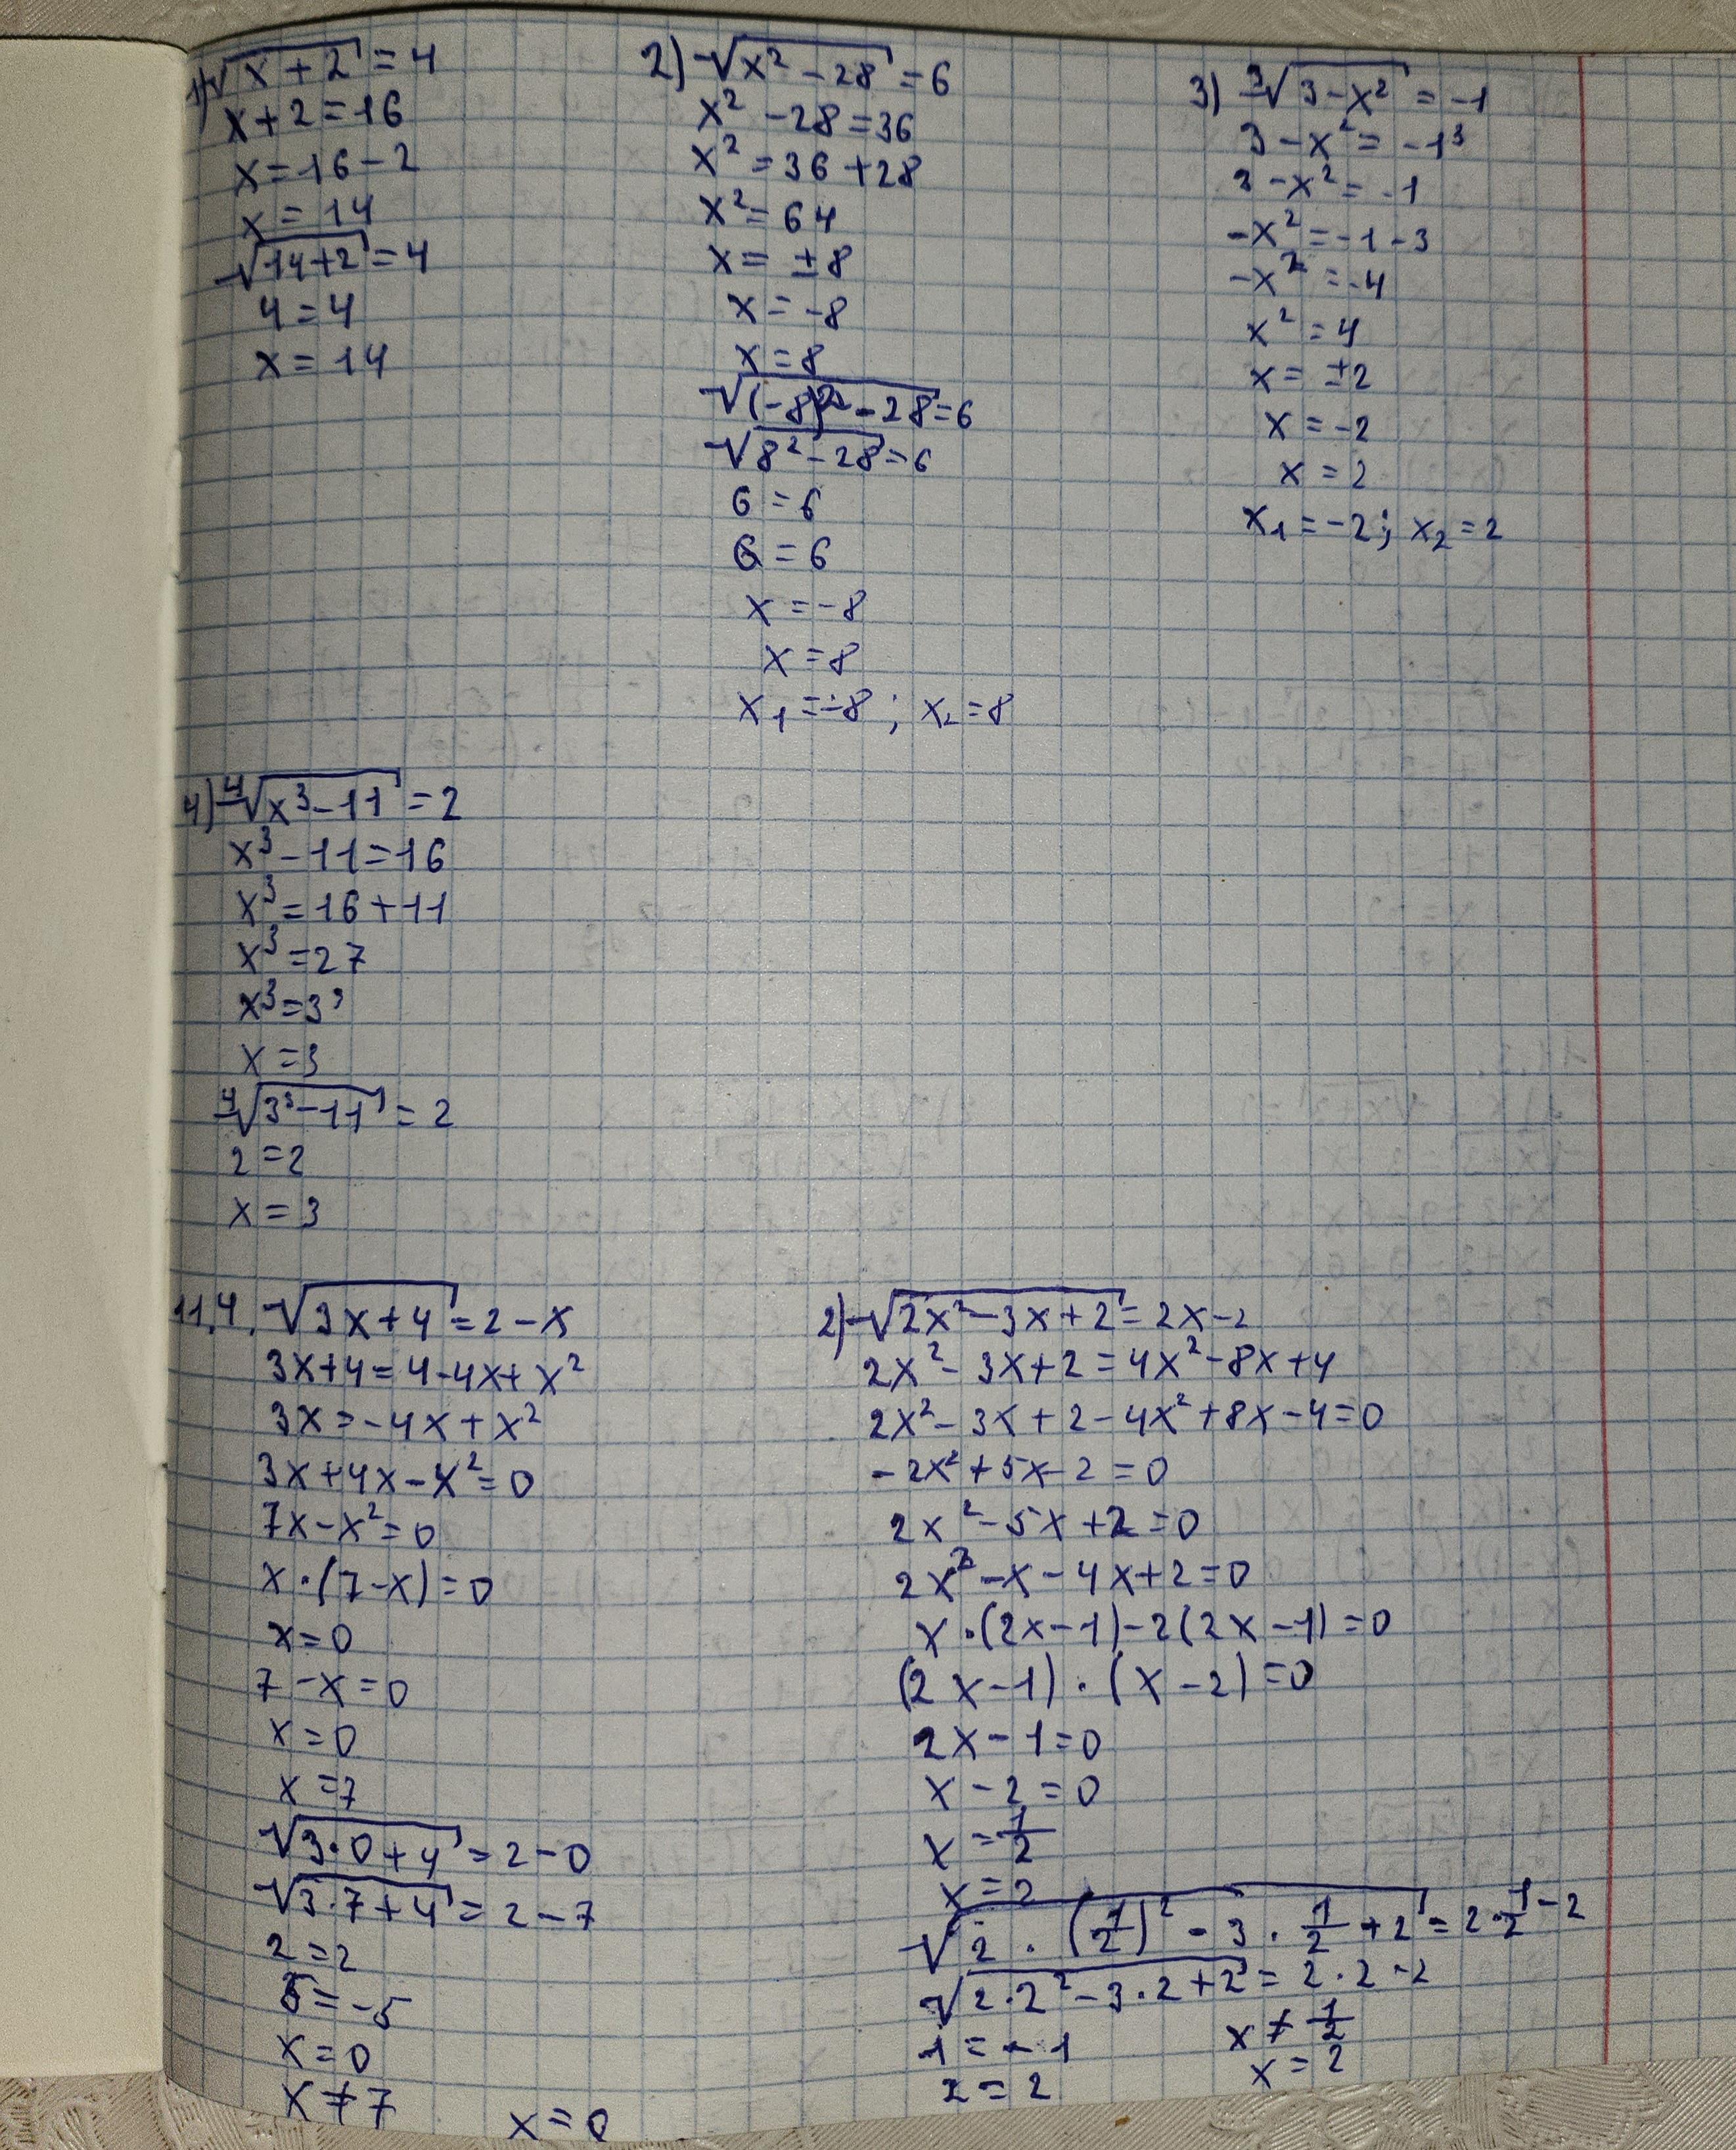 1) √(x+2) = 4
x+2=16
x=16-2
x=14
√(14+2) = 4
4=4
x=14
2) √(x²-28) = 6
x²-28=36
x²=36+28
x²=64
x=±8
x=-8
x=8
√((-8)²-28)=6
√(8²-28)=6
6=6
6=6
x=-8
x=8
x₁=-8; x₂=8
3) ³√(3-x²) = -1
3-x²=-1³
3-x²=-1
-x²=-1-3
-x²=-4
x²=4
x=±2
x=-2
x=2
x₁=-2; x₂=2
4) ⁴√(x³-11) = 2
x³-11=16
x³=16+11
x³=27
x³=3³
x=3
⁴√(3³-11) = 2
2=2
x=3
11.4. √(3x+4) = 2-x
3x+4=4-4x+x²
3x=-4x+x²
3x+4x-x²=0
7x-x²=0
x·(7-x)=0
x=0
7-x=0
x=0
x=7
√(3·0+4) = 2-0
√(3·7+4) = 2-7
2=2
5=-5
x=0
x≠7
x=0
2) √(2x²-3x+2) = 2x-2
2x²-3x+2=4x²-8x+4
2x²-3x+2-4x²+8x-4=0
-2x²+5x-2=0
2x²-5x+2=0
2x²-x-4x+2=0
x·(2x-1)-2(2x-1)=0
(2x-1)·(x-2)=0
2x-1=0
x-2=0
x=1/2
x=2
√(2·(1/2)²-3·1/2+2) = 2·1/2-2
√(2·2²-3·2+2) = 2·2-2
1=-1
2=2
x≠1/2
x=2